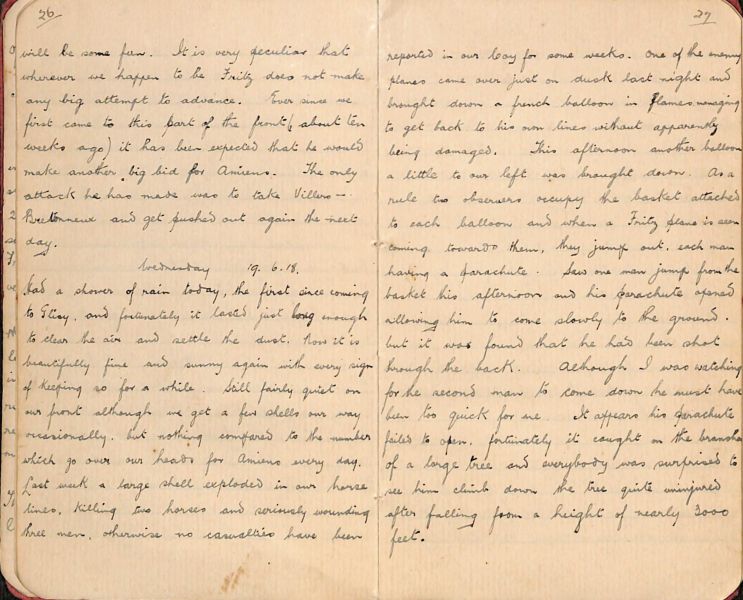 26
will be some fun. It is very peculiar that
wherever we happen to be Fritz does not make
any big attempt to advance. Ever since we
first came to this part of the front (about ten
weeks ago) it has been expected that he would
make another big bid for Amiens. The only
attack he has made was to take Villers-
Bretonneux and get pushed out again the next
day.
Wednesday 19.6.18.
Had a shower of rain today, the first since coming
to Glisy, and fortunately it lasted just long enough
to clear the air and settle the dust. Now it is
beautifully fine and sunny again with every sign
of keeping so for a while. Still fairly quiet on
our front although we get a few shells our way
occasionally, but nothing compared to the number
which go over our heads for Amiens every day.
Last week a large shell exploded in our horse
lines, killing two horses and seriously wounding
three men, otherwise no casualties have been
27
reported in our Coy for some weeks. One of the enemy
planes came over just on dusk last night and
brought down a french balloon in flames managing
to get back to his own lines without apparently
being damaged. This afternoon another balloon
a little to our left was brought down. As a
rule two observers occupy the basket attached
to each balloon and when a Fritz plane is seen
coming towards them, they jump out, each man
having a parachute. Saw one man jump from the
basket this afternoon and his parachute opened
allowing him to come slowly to the ground.
but it was found that he had been shot
through the back. Although I was watching
for the second man to come down he must have
been too quick for me. It appears his parachute
failed to open, fortunately it caught on the branches
of a large tree and everybody was surprised to
see him climb down the tree quite uninjured
after falling from a height of nearly 3000
feet.